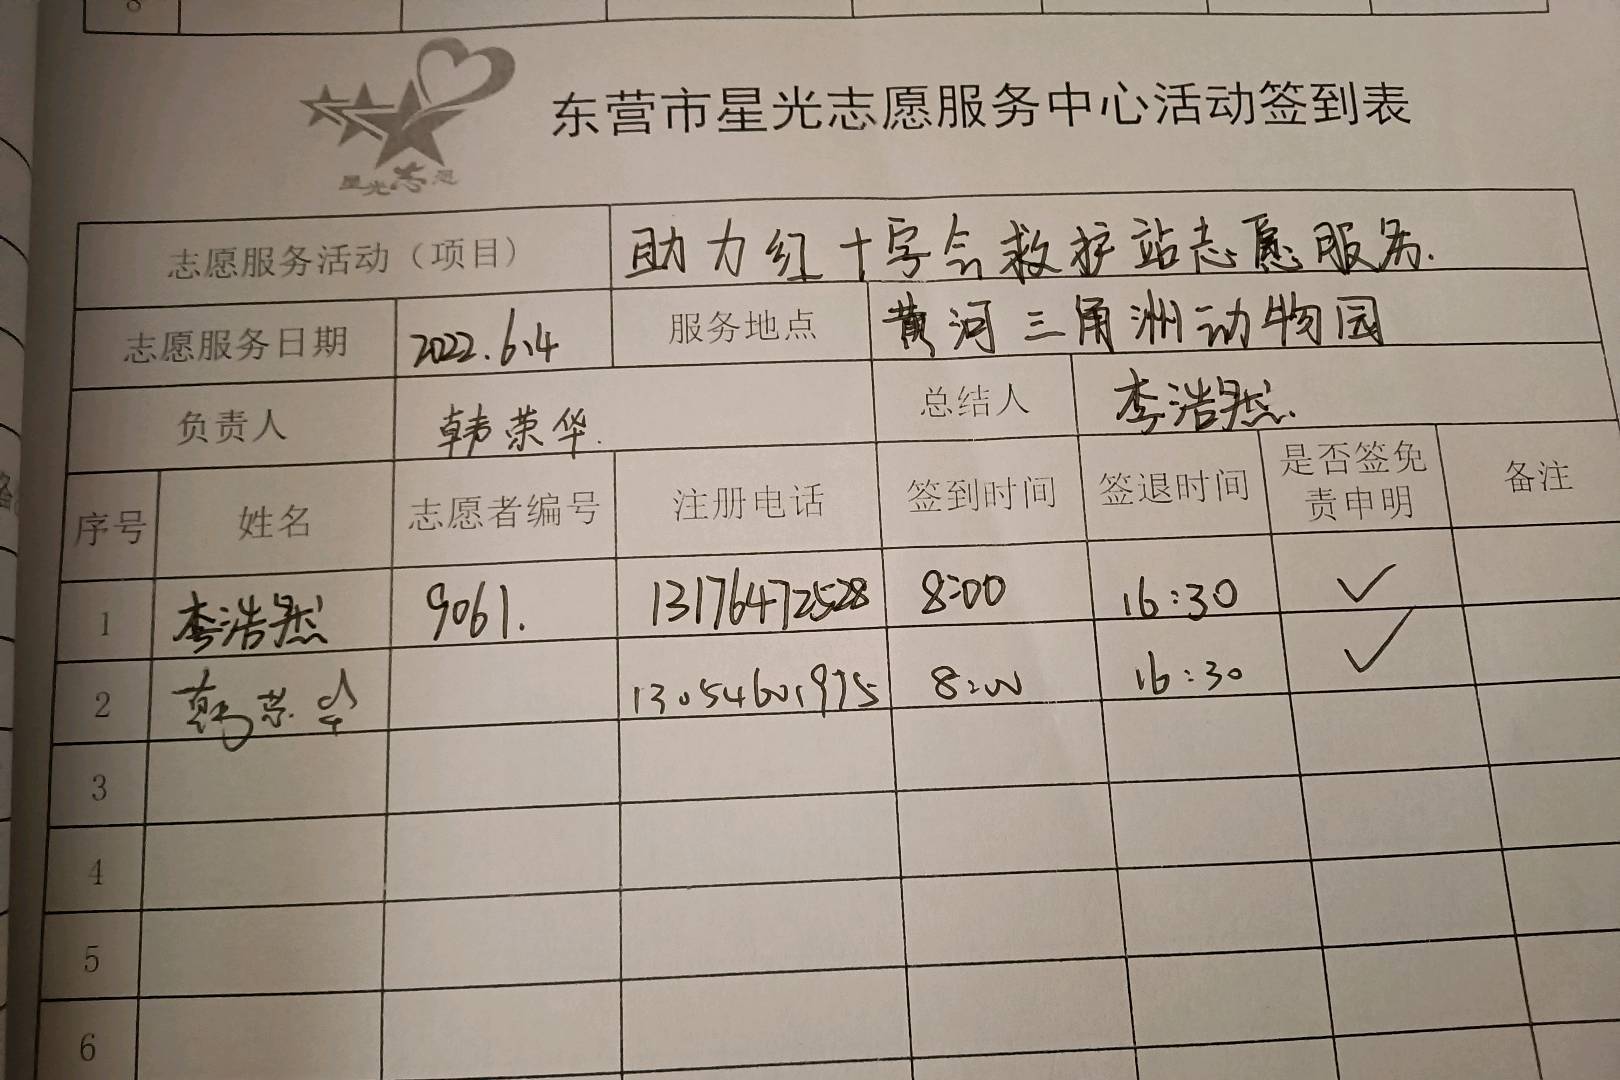 8
星光志愿
东营市星光志愿服务中心活动签到表
志愿服务活动（项目） 助力红十字会救护站志愿服务.
志愿服务日期 2022.6.4 服务地点 黄河三角洲动物园
负责人 韩荣华. 总结人 李浩然.
序号 姓名 志愿者编号 注册电话 签到时间 签退时间 是否签免责申明 备注
1 李浩然 9061. 13176472528 8:00 16:30 ✓
2 韩荣华 13054601975 8:00 16:30 ✓
3
4
5
6